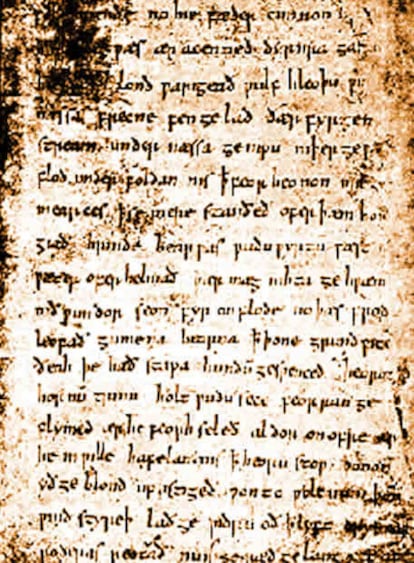 no hie fæder cunnon
ƿæs ær acenned dyrnra ga
lond ƿarigeað ƿulf hleoþu
frecne fen gelad ðær fyrgen
stream under næssa genipu niþer ge
flod under foldan nis ꝥ feor heonon mil
mearces ꝥ se mere standeð ofer þæm hon
giað hrinde bearƿas ƿudu ƿyrtum fæst
ƿæter ofer helmað þær mæg nihta ge hƿæm
nið ƿundor seon fyr on flode no þæs frod
leofað gumena bearna ꝥ þone grund ƿite
ðeah þe hæð stapa hundū gesƿenced heorot
hornū trum holt ƿudu sece feorran ge
flymed ær he feorh seleð aldor on ofre ær
he in ƿille hafelan nis ꝥ heoru stoƿ þonon
yð ge blond up astigeð ƿon to ƿolcnum þon
ƿind styreþ lað ge ƿidru oð ꝥ lyft
roderas reotað nu is se ræd ge lang